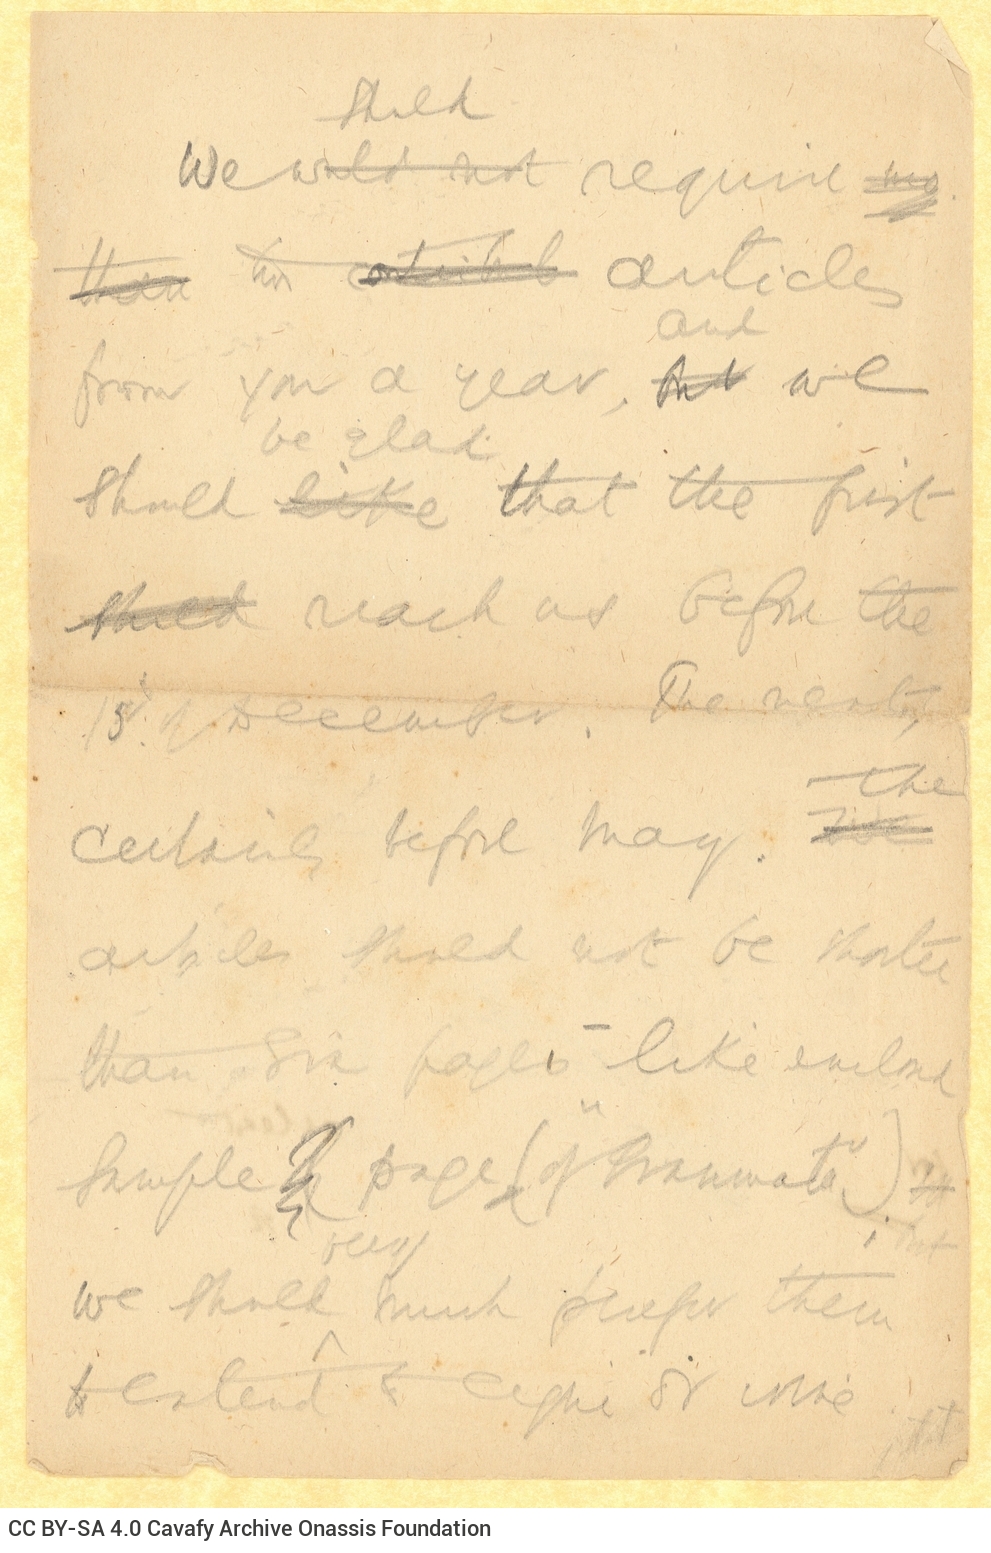 should
We would not require
than two articles
and
from you a year, but we
be glad
should like that the first
should reach us before the
15th of December. The next,
certainly before May. The
articles should not be shorter
than six pages – like enclosed
sample page (of "Grammata")
but
very
we should much prefer them
to extend to eight or nine
CC BY-SA 4.0 Cavafy Archive Onassis Foundation